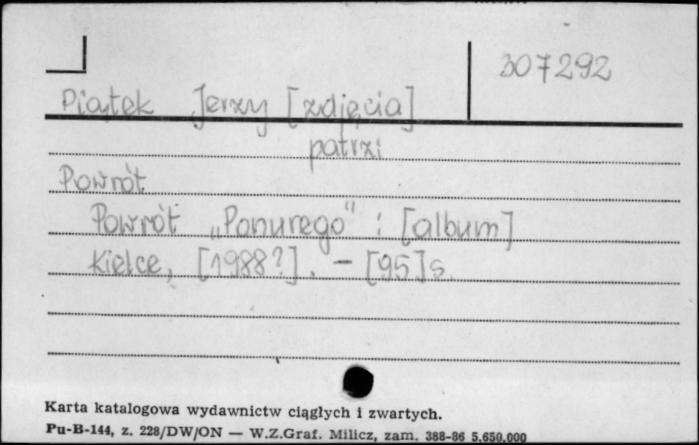 307292
Piątek Jerzy [zdjęcia]
patrz:
Powrót
Powrót „Ponurego" : [album]
Kielce, [1988?]. — [95]s.
Karta katalogowa wydawnictw ciągłych i zwartych.
Pu-B-144, z. 228/DW/ON — W.Z.Graf. Milicz, zam. 388-86 5.650.000